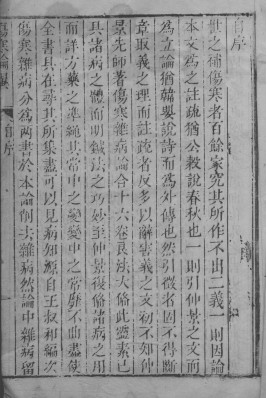 自序
世之補傷寒者百餘家究其所作不出二義一則因論
本文爲之註疏猶公穀說春秋也一則引仲景之文而
爲立論猶韓嬰說詩而爲外傳也然引徵者固不得斷
章取義之理而註疏者反多以辭害義之文初不知仲
景先師著傷寒雜病論合十六卷良法大備此靈素已
具諸病之體而明鍼法之巧妙至仲景復備諸病之用
而詳方藥之準繩其常中之變變中之常靡不曲盡使
全書具在尋其所集盡可以見病知源自王叔和編次
傷寒雜病分爲兩書於本論削去雜病然論中雜病留
自序